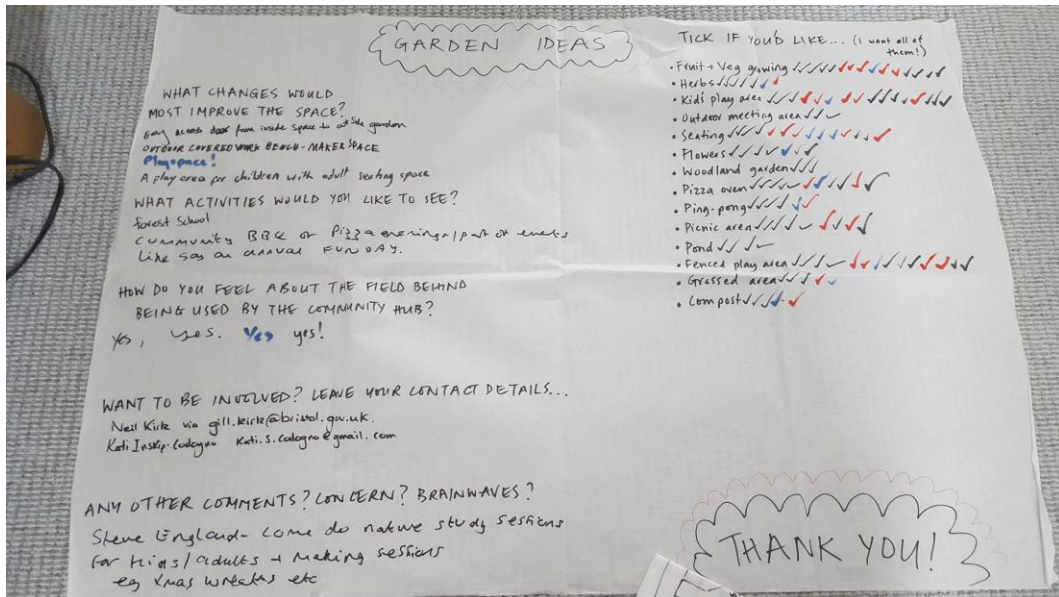 GARDEN IDEAS
WHAT CHANGES WOULD
MOST IMPROVE THE SPACE?
Easy access door from inside space to outside garden
OUTDOOR COVERED WORK BENCH - MAKER SPACE
Playspace!
A play area for children with adult seating space
WHAT ACTIVITIES WOULD YOU LIKE TO SEE?
Forest School
COMMUNITY BBQ or Pizza evenings / part of events
like say an annual FUN DAY.
HOW DO YOU FEEL ABOUT THE FIELD BEHIND
BEING USED BY THE COMMUNITY HUB?
yes, yes. Yes yes!
WANT TO BE INVOLVED? LEAVE YOUR CONTACT DETAILS...
Neil Kirk via gill.kirk@bristol.gov.uk.
Kati Inskip-Codogno Kati.s.codogno@gmail.com
ANY OTHER COMMENTS? CONCERN? BRAINWAVES?
Steve England - come do nature study sessions
for kids/adults + making sessions
eg Xmas wreaths etc
TICK IF YOU'D LIKE... (I want all of
them!)
• Fruit + Veg growing ✓✓✓✓✓✓✓✓✓✓✓✓✓✓
• Herbs ✓✓✓✓✓✓✓
• Kid's play area ✓✓✓✓✓✓✓✓✓✓✓✓✓✓
• Outdoor meeting area ✓✓✓
• Seating ✓✓✓✓✓✓✓✓✓✓✓✓✓
• Flowers ✓✓✓✓✓✓✓
• Woodland garden ✓✓✓
• Pizza oven ✓✓✓✓✓✓✓✓✓✓
• Ping-pong ✓✓✓✓✓✓
• Picnic area ✓✓✓✓✓✓✓✓
• Pond ✓✓✓✓
• Fenced play area ✓✓✓✓✓✓✓✓✓✓✓✓✓
• Grassed area ✓✓✓✓✓✓
• Compost ✓✓✓✓✓✓
THANK YOU!